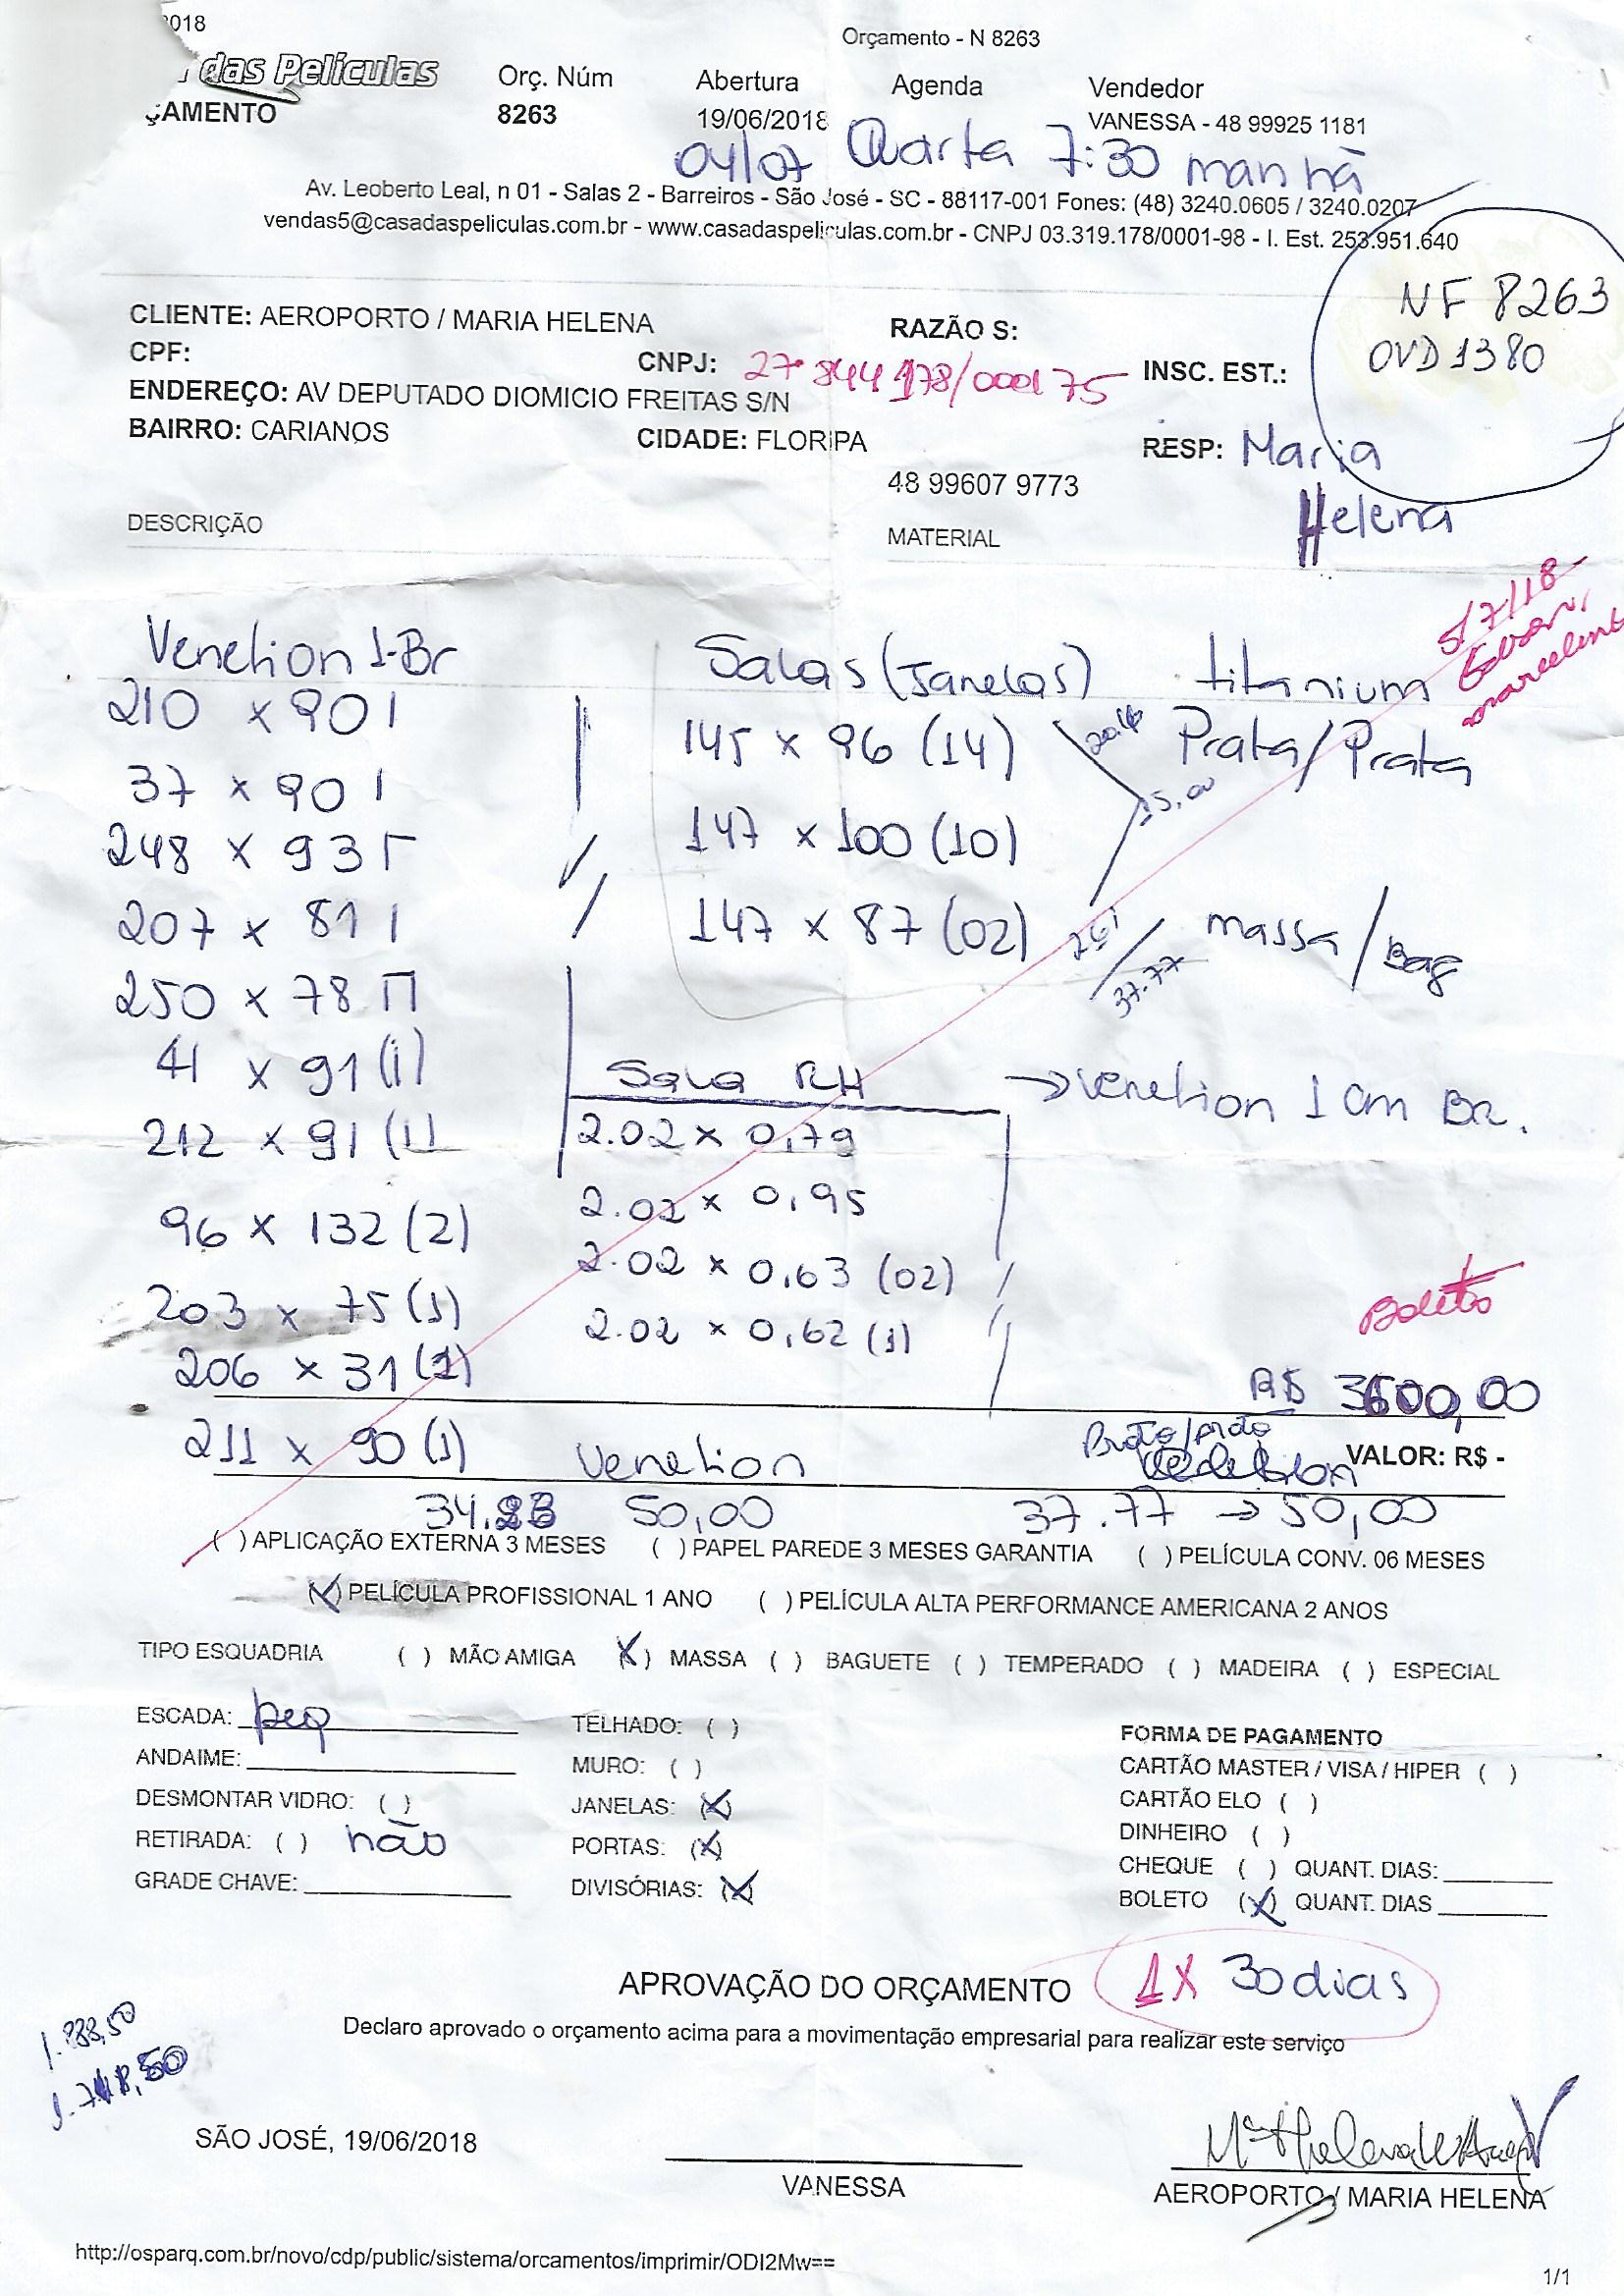 2018
Orçamento - N 8263
das Películas
Orç. Núm Abertura Agenda Vendedor
ÇAMENTO 8263 19/06/2018 VANESSA - 48 99925 1181
04/07 Quarta 7:30 manhã
Av. Leoberto Leal, n 01 - Salas 2 - Barreiros - São José - SC - 88117-001 Fones: (48) 3240.0605 / 3240.0207
vendas5@casadaspeliculas.com.br - www.casadaspeliculas.com.br - CNPJ 03.319.178/0001-98 - I. Est. 253.951.640
NF 8263
OVD 1380
CLIENTE: AEROPORTO / MARIA HELENA RAZÃO S:
CPF: CNPJ: 27.844.178/0001 75 INSC. EST.:
ENDEREÇO: AV DEPUTADO DIOMICIO FREITAS S/N
BAIRRO: CARIANOS CIDADE: FLORIPA RESP: Maria Helena
48 99607 9773
DESCRIÇÃO MATERIAL
5/7/18
Venetion 1-Br Salas (Janelas) titanium
210 x 90 I 145 x 96 (14) Prata/Prata
37 x 90 I 15,00
248 x 93 Γ 147 x 100 (10)
207 x 81 I 147 x 87 (02) massa/Bag
250 x 78 Π 37.77
41 x 91 (1) Sala RH → venetion 1 cm Br.
212 x 91 (1) 2.02 x 0,79
96 x 132 (2) 2.02 x 0,95
203 x 75 (1) 2.02 x 0,63 (02)
206 x 31 (1) 2.02 x 0,62 (1)
Boleto
R$ 3600,00
211 x 90 (1) Venetion
VALOR: R$ -
50,00 37.77 → 50,00
( ) APLICAÇÃO EXTERNA 3 MESES ( ) PAPEL PAREDE 3 MESES GARANTIA ( ) PELÍCULA CONV. 06 MESES
(X) PELÍCULA PROFISSIONAL 1 ANO ( ) PELÍCULA ALTA PERFORMANCE AMERICANA 2 ANOS
TIPO ESQUADRIA ( ) MÃO AMIGA (X) MASSA ( ) BAGUETE ( ) TEMPERADO ( ) MADEIRA ( ) ESPECIAL
ESCADA: peq TELHADO: ( ) FORMA DE PAGAMENTO
ANDAIME: MURO: ( ) CARTÃO MASTER / VISA / HIPER ( )
DESMONTAR VIDRO: ( ) JANELAS: (X) CARTÃO ELO ( )
RETIRADA: ( ) não PORTAS: (X) DINHEIRO ( )
GRADE CHAVE: DIVISÓRIAS: (X) CHEQUE ( ) QUANT. DIAS:
BOLETO (X) QUANT. DIAS
APROVAÇÃO DO ORÇAMENTO 1X 30 dias
Declaro aprovado o orçamento acima para a movimentação empresarial para realizar este serviço
SÃO JOSÉ, 19/06/2018
VANESSA AEROPORTO / MARIA HELENA
http://osparq.com.br/novo/cdp/public/sistema/orcamentos/imprimir/ODI2Mw==
1/1